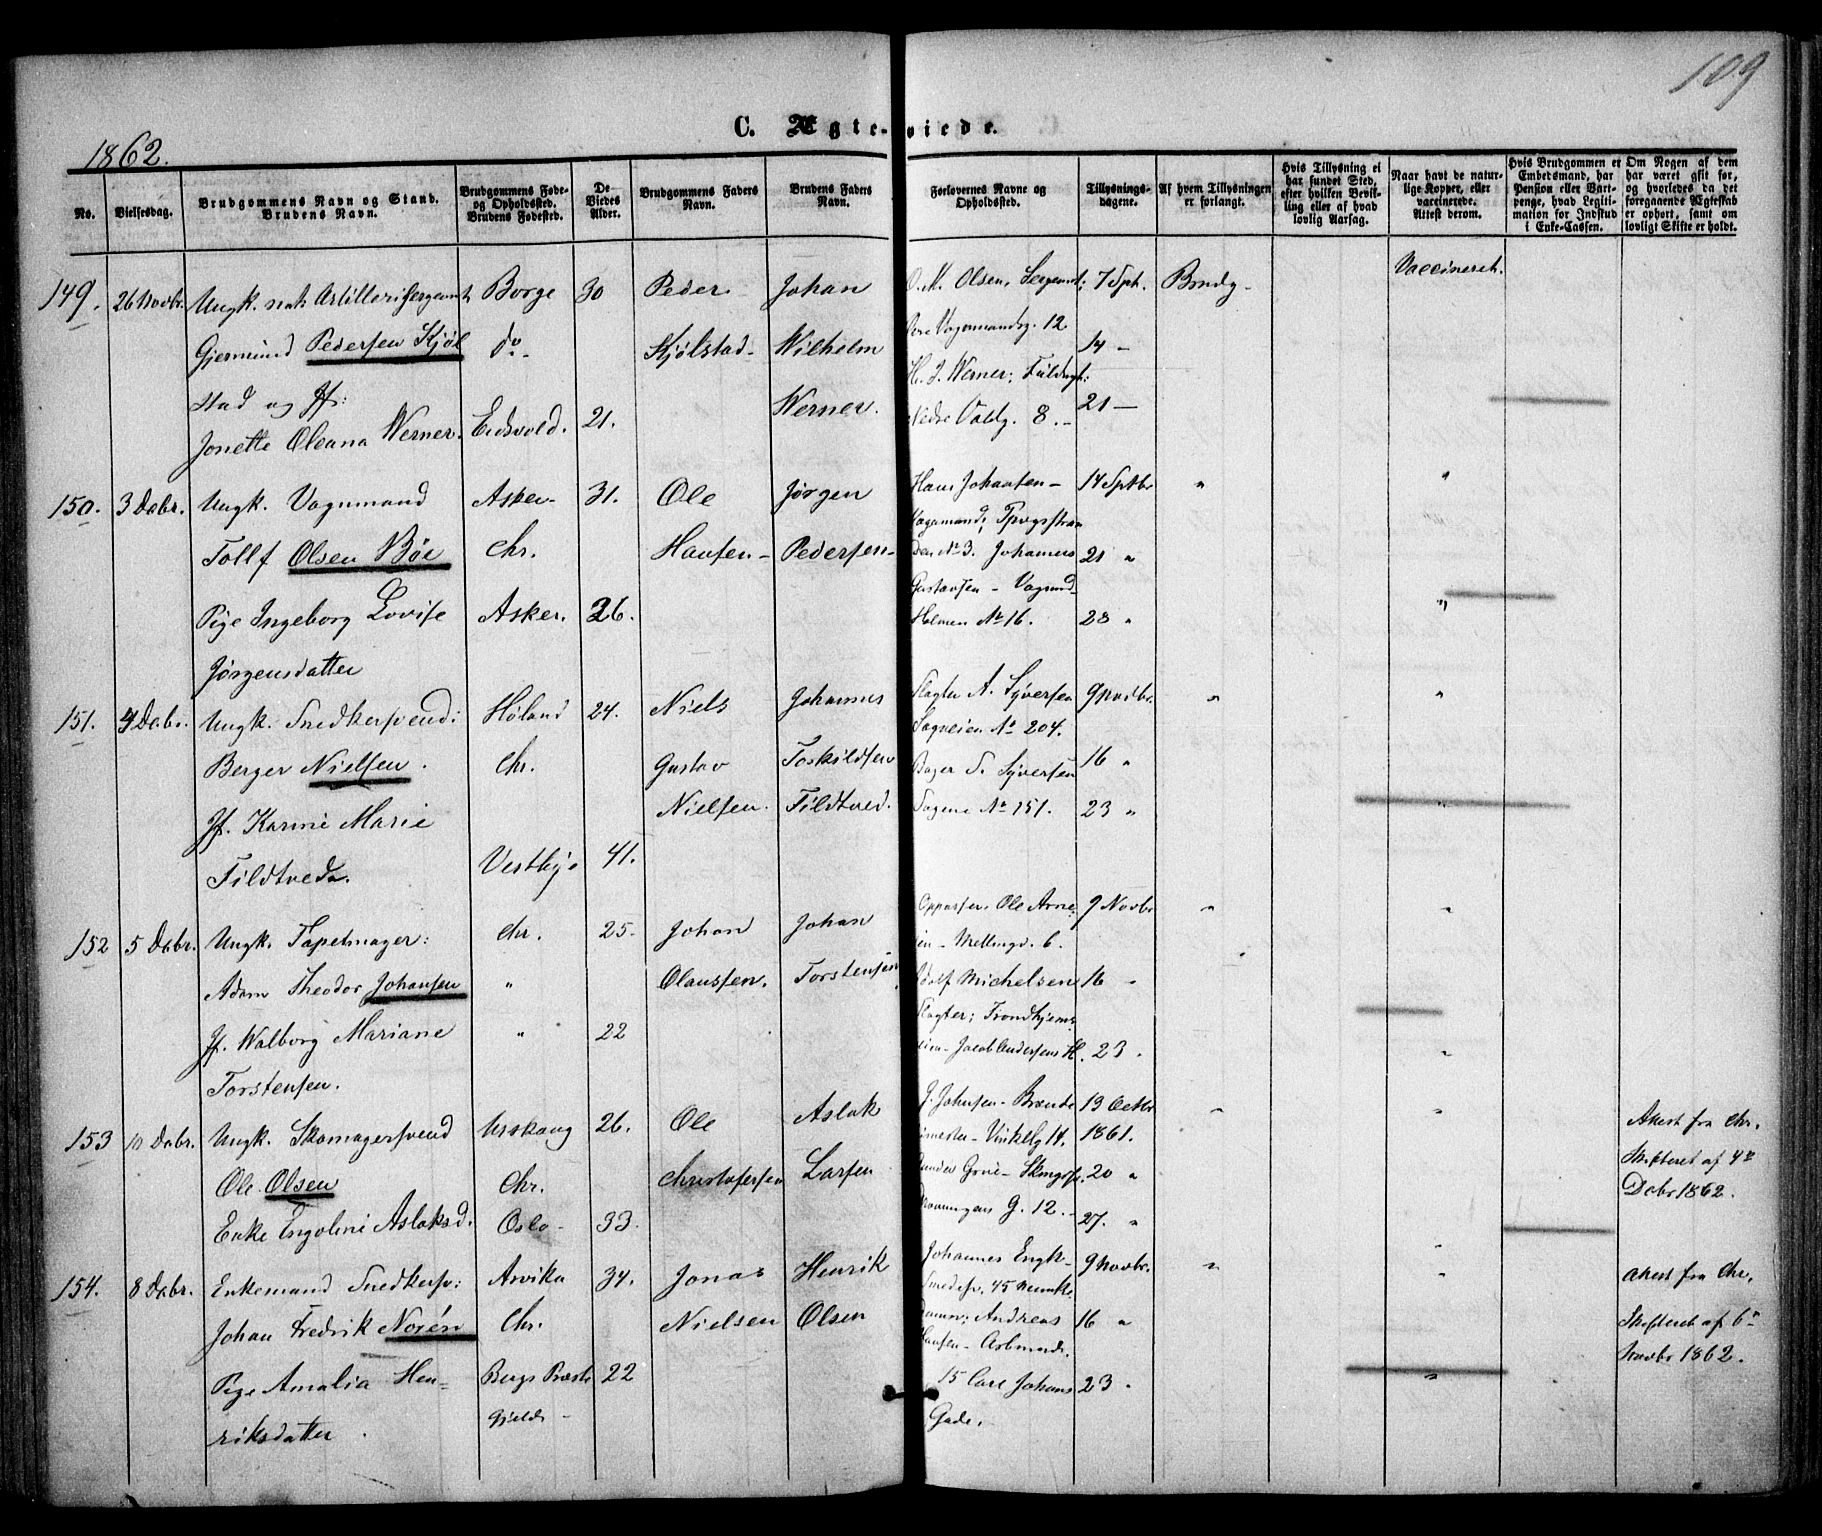 109
C. Ægte-viede.
1862.
No.
Vielsesdag.
Brudgommens Navn og Stand.
Brudens Navn.
Brudgommens Føde-
og Opholdssted.
Brudens Fødested.
De
Viedes
Alder.
Brudgommens Faders
Navn.
Brudens Faders
Navn.
Forlovernes Navne og
Opholdssted.
Tillysnings-
dagene.
Af hvem Tillysningen
er forlangt.
Hvis Tillysning ei
har fundet Sted,
efter hvilken Bevil-
ling eller af hvad
lovlig Aarsag.
Naar havt de natur-
lige Kopper, eller
vaccinerede.
Attest derom.
Hvis Brudgommen er
Embedsmand, har
Pension eller Vart-
penge, hvad Legiti-
mation for Indskud
i Enke-Cassen.
Om Nogen af dem
har været gift før,
og hvorledes da det
foregaaende Ægteskab
er ophørt, samt om
lovligt Skifte er holdt.
149. 26 Novbr. Ungk. Artillerisergeant Borge 30 Peder Johan O. M. Olsen, Sergeant; 7 Sptr. Brudg. Vaccineret.
Gjermund Pedersen Kjøl do Kjølstad Wilhelm 12 14 —
stad og Jf: Werner. H. J. Werner; 21 —
Jonette Oleana Werner. Eidsvold. 21. Nedre Voldg. 8. —
150. 3 Dcbr. Ungk. Vognmand Asker 31. Ole Jørgen Hans Johansen 14 Sptbr " "
Tollf Olsen Bøe Chr. Hansen Pedersen No 3. Johannes 21 "
Pige Ingeborg Lovise Asker. 26. Gustavsen - Vognmd Holmen No 16. 28 " "
Jørgensdatter
151. 4 Dcbr. Ungk. Snedkersvend: Høland 24. Niels Johannes Slagter A. Syversen 9 Novbr. " "
Berger Nielsen. Chr. Gustav Toskildsen Sagveien No 204. Bager S. Syversen 16 "
Jf. Karine Marie Nielsen. Fildtved. Sagene No 151. 23 " "
Fildtved. Vestbye 41.
152 5 Dcbr. Ungk. Tapetmager: Chr. 25. Johan Johan Oppasser. Ole Arne- 9 Novbr " "
Adam Theodor Johansen " Olaussen. Torstensen sen - Mellingd. 6. Adolf Michelsen 16 "
Jf. Walborg Mariane " 22 Slagter; Trondhjems-
Torstensen. veien - Jacob Andersens H. 23. "
153 10 Dcbr. Ungk. Skomagersvend Urskoug 26. Ole Aslak J. Johnsen - Brænde 13 Octbr " " Attest fra Chr.
Ole Olsen Chr. Christofersen Larsen 1861. 20 " Skifteret af 4de
Enke Engoline Aslaksd. Oslo 33. G. 12. 27. " " Dcbr 1862.
154. 8 Dcbr. Enkemand Snedkersv: Arvika 34. Jonas Henrik Johannes Engk- 9 Novbr. " " Attest fra Chr.
Johan Fredrik Norén Chr. Nielsen Olsen Snedksv. 45 Munke
damm; Andreas 16 " Skifteret af 6te
Hansen - Arbmand. Novbr 1862.
Pige Amalia Hen= Bergs Præste 22 15 Carl Johans 23 " "
riksdatter. Gjeld Gade.